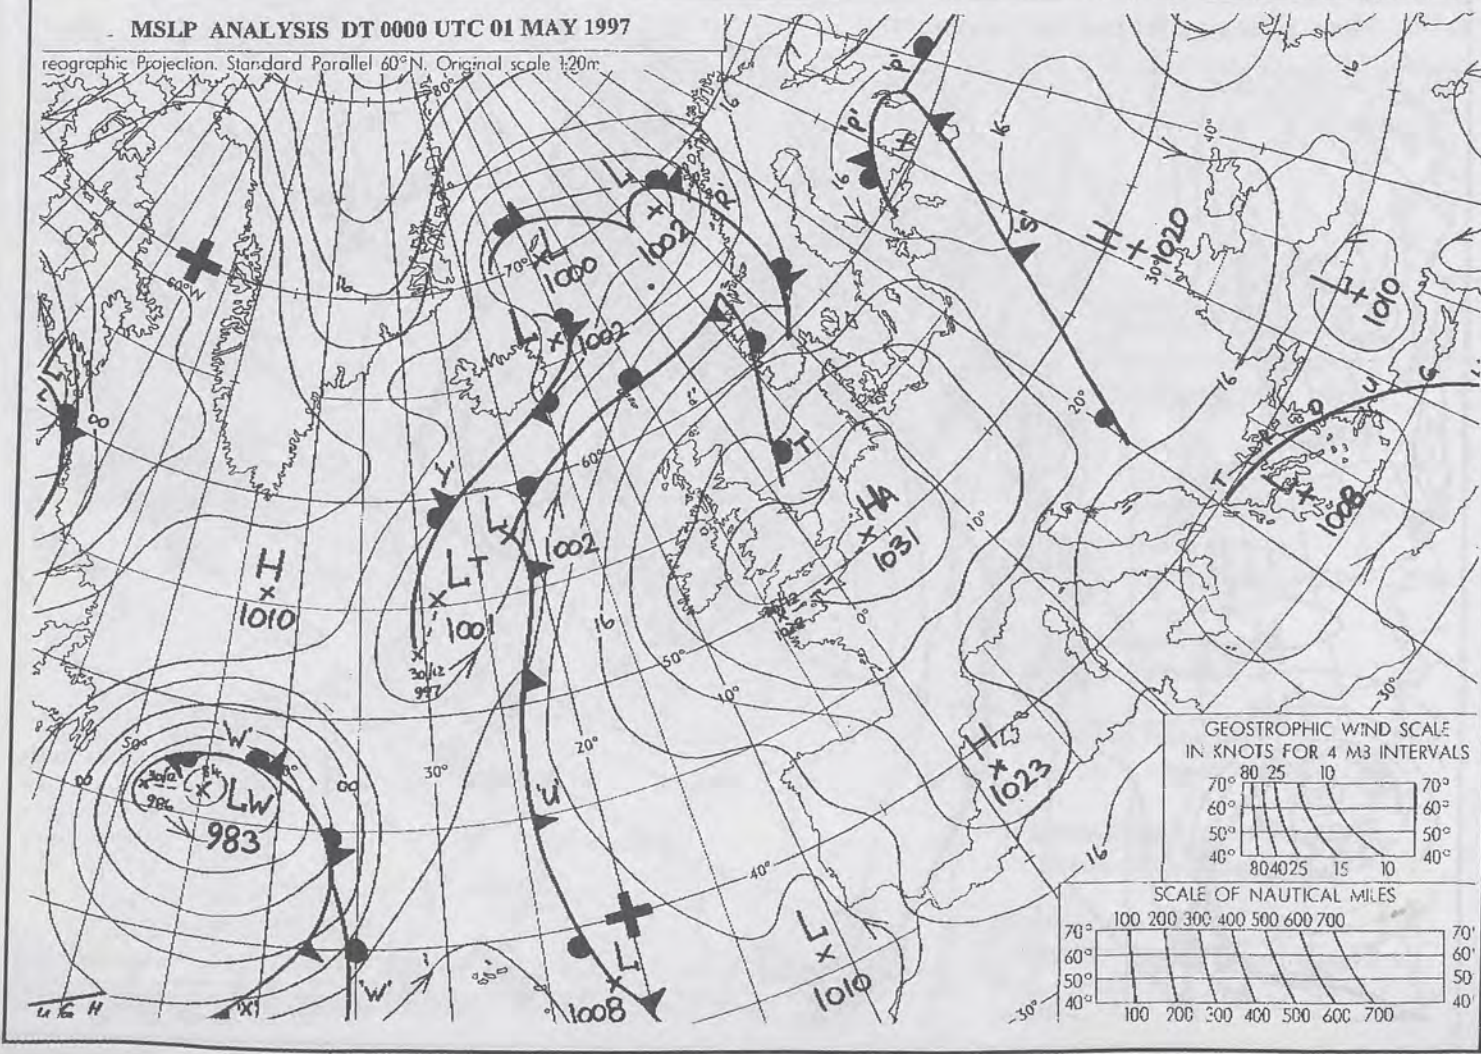 MSLP ANALYSIS DT 0000 UTC 01 MAY 1997
reographic Projection. Standard Parallel 60°N. Original scale 1:20m
80°
16
'P'
'P'
16
16
16
40°
L
1002
'R'
'S'
H
1020
30°
L
1010
60°W
16
70°
L
1000
L
1002
00
60°
20°
16
T R O U G H
L
1008
'T'
HA
1031
10°
L
1002
H
1010
LT
1001
30/12
997
16
50°
10°
0°
30/12
H
1023
30°
50°
'W'
00
30/12
986
84
LW
983
00
30°
20°
'U'
40°
16
L
1008
L
1010
'X'
'W'
U G H
30°
GEOSTROPHIC WIND SCALE
IN KNOTS FOR 4 MB INTERVALS
80 25 10
70° 70°
60° 60°
50° 50°
40° 40°
80 40 25 15 10
SCALE OF NAUTICAL MILES
100 200 300 400 500 600 700
70° 70°
60° 60°
50° 50
40° 40°
100 200 300 400 500 600 700